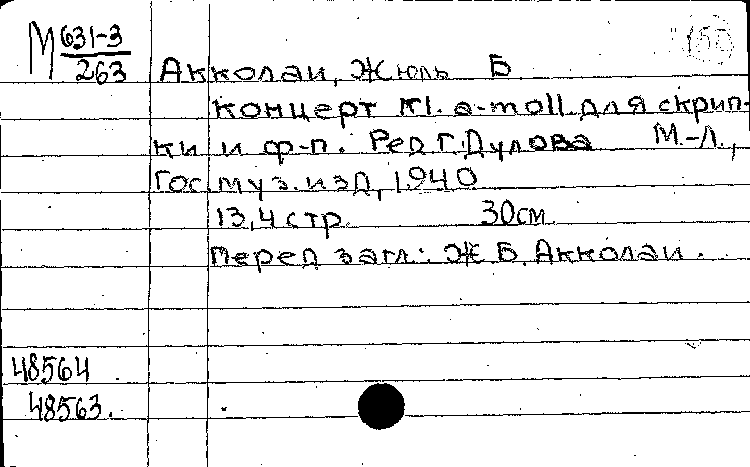 М 631-3
263
150
Акколаи, Жюль Б
концерт №1. a-moll. для скрип-
ки и ф-п. Ред. Г. Дулова М.-Л.,
Гос. муз. изд, 1940
13,4 стр. 30см.
Перед загл.: Ж. Б. Акколаи.
48564
48563.